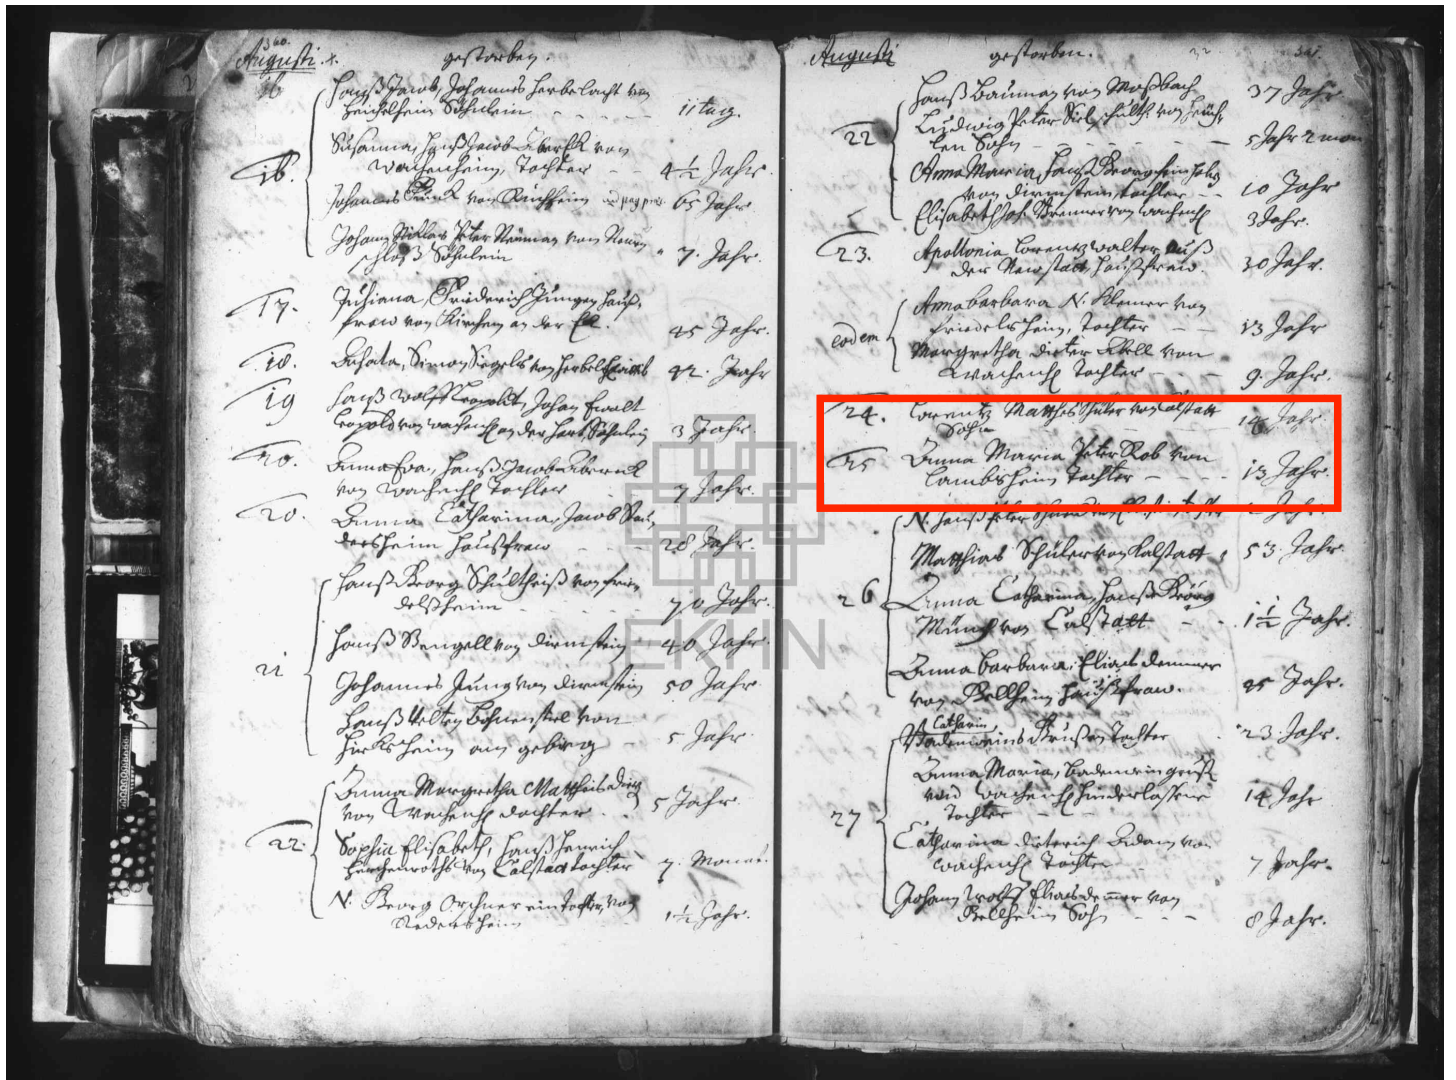 360.
Augusti.
gestorben.
16
Hanß Jacob, Johannes Herbelacht von
Heichelheim Söhnlein
11 tag.
16.
Susanna, Hanß Jacob von
Wachenheim, Tochter
4½ Jahr.
Johannes von Kirchheim
65 Jahr.
Johann Niklas Peter Neuman von Neuen
schloß Söhnlein
7. Jahr.
17.
Juliana, Friederich Jungen Hauß
fraw von Kirchen an der Eck.
45 Jahr.
18.
Agata, Simon Siegels von Herbelsheim
42. Jahr
19
Hanß Wolff Leopoldt, Johan Ewalt
Leopold von Wachenh. an der Hart, Söhnlein
3 Jahr.
20.
Anna Eva, Hanß Jacob
von Wachenh. Tochter
7 Jahr.
20.
Anna Catharina, Jacob
dersheim Haußfraw
28 Jahr.
21
Hanß Georg Schultheiß von Frie
delßheim
70 Jahr.
Hanß Bengell von Dirmstein
40 Jahr.
Johannes Jung von Dirmstein
50 Jahr.
Hanß Velten Bohnenstiel von
am gebirg
5 Jahr.
22.
Anna Margretha Mattheis
von Wachenh. dochter
5 Jahr.
Sophia Elisabeth, Hanß Henrich
Herchenroths von Calstatt tochter
7. Monat.
N. Georg ein tochter, von
Redersheim
1½ Jahr.
Augusti
gestorben.
361
22
Hanß Bauman von Moßbach
37 Jahr
Ludwig Peter Siel, schulth. von Heuch
len Sohn
5 Jahr 2 mon
Anna Maria, Hanß Georg
von Dirmstein, tochter
10 Jahr
Elisabeth Joh. Brenner von Wachenh.
3 Jahr.
23.
Apollonia Lorentz Walter auß
der Newstatt, Haußfraw.
30 Jahr.
eodem
Anna barbara N. Klemer von
Friedelsheim, Tochter
13 Jahr
Margretha Dieter Abell von
Wachenh. Tochter
9. Jahr.
24.
Lorentz Matthes Schuler von Calstatt
Sohn
14 Jahr.
25
Anna Maria Peter Rob von
Lambsheim Tochter
13 Jahr.
26
N. Hanß Peter
Jahr.
Matthias Schuler von Kalstatt
53. Jahr.
Anna Catharina, Hanß Georg
Münch von Calstatt
1½ Jahr.
Anna barbara, Elias Demmer
von Bellheim Haußfraw.
45 Jahr.
27
Catharin
Tochter
23. Jahr.
Anna Maria,
von Wachenh. hinderlassene
Tochter
14 Jahr
Catharina Dieterich Adam von
Wachenh. Tochter
7 Jahr.
Johann Wolff Elias Demmer von
Bellheim Sohn
8 Jahr.
EKHN